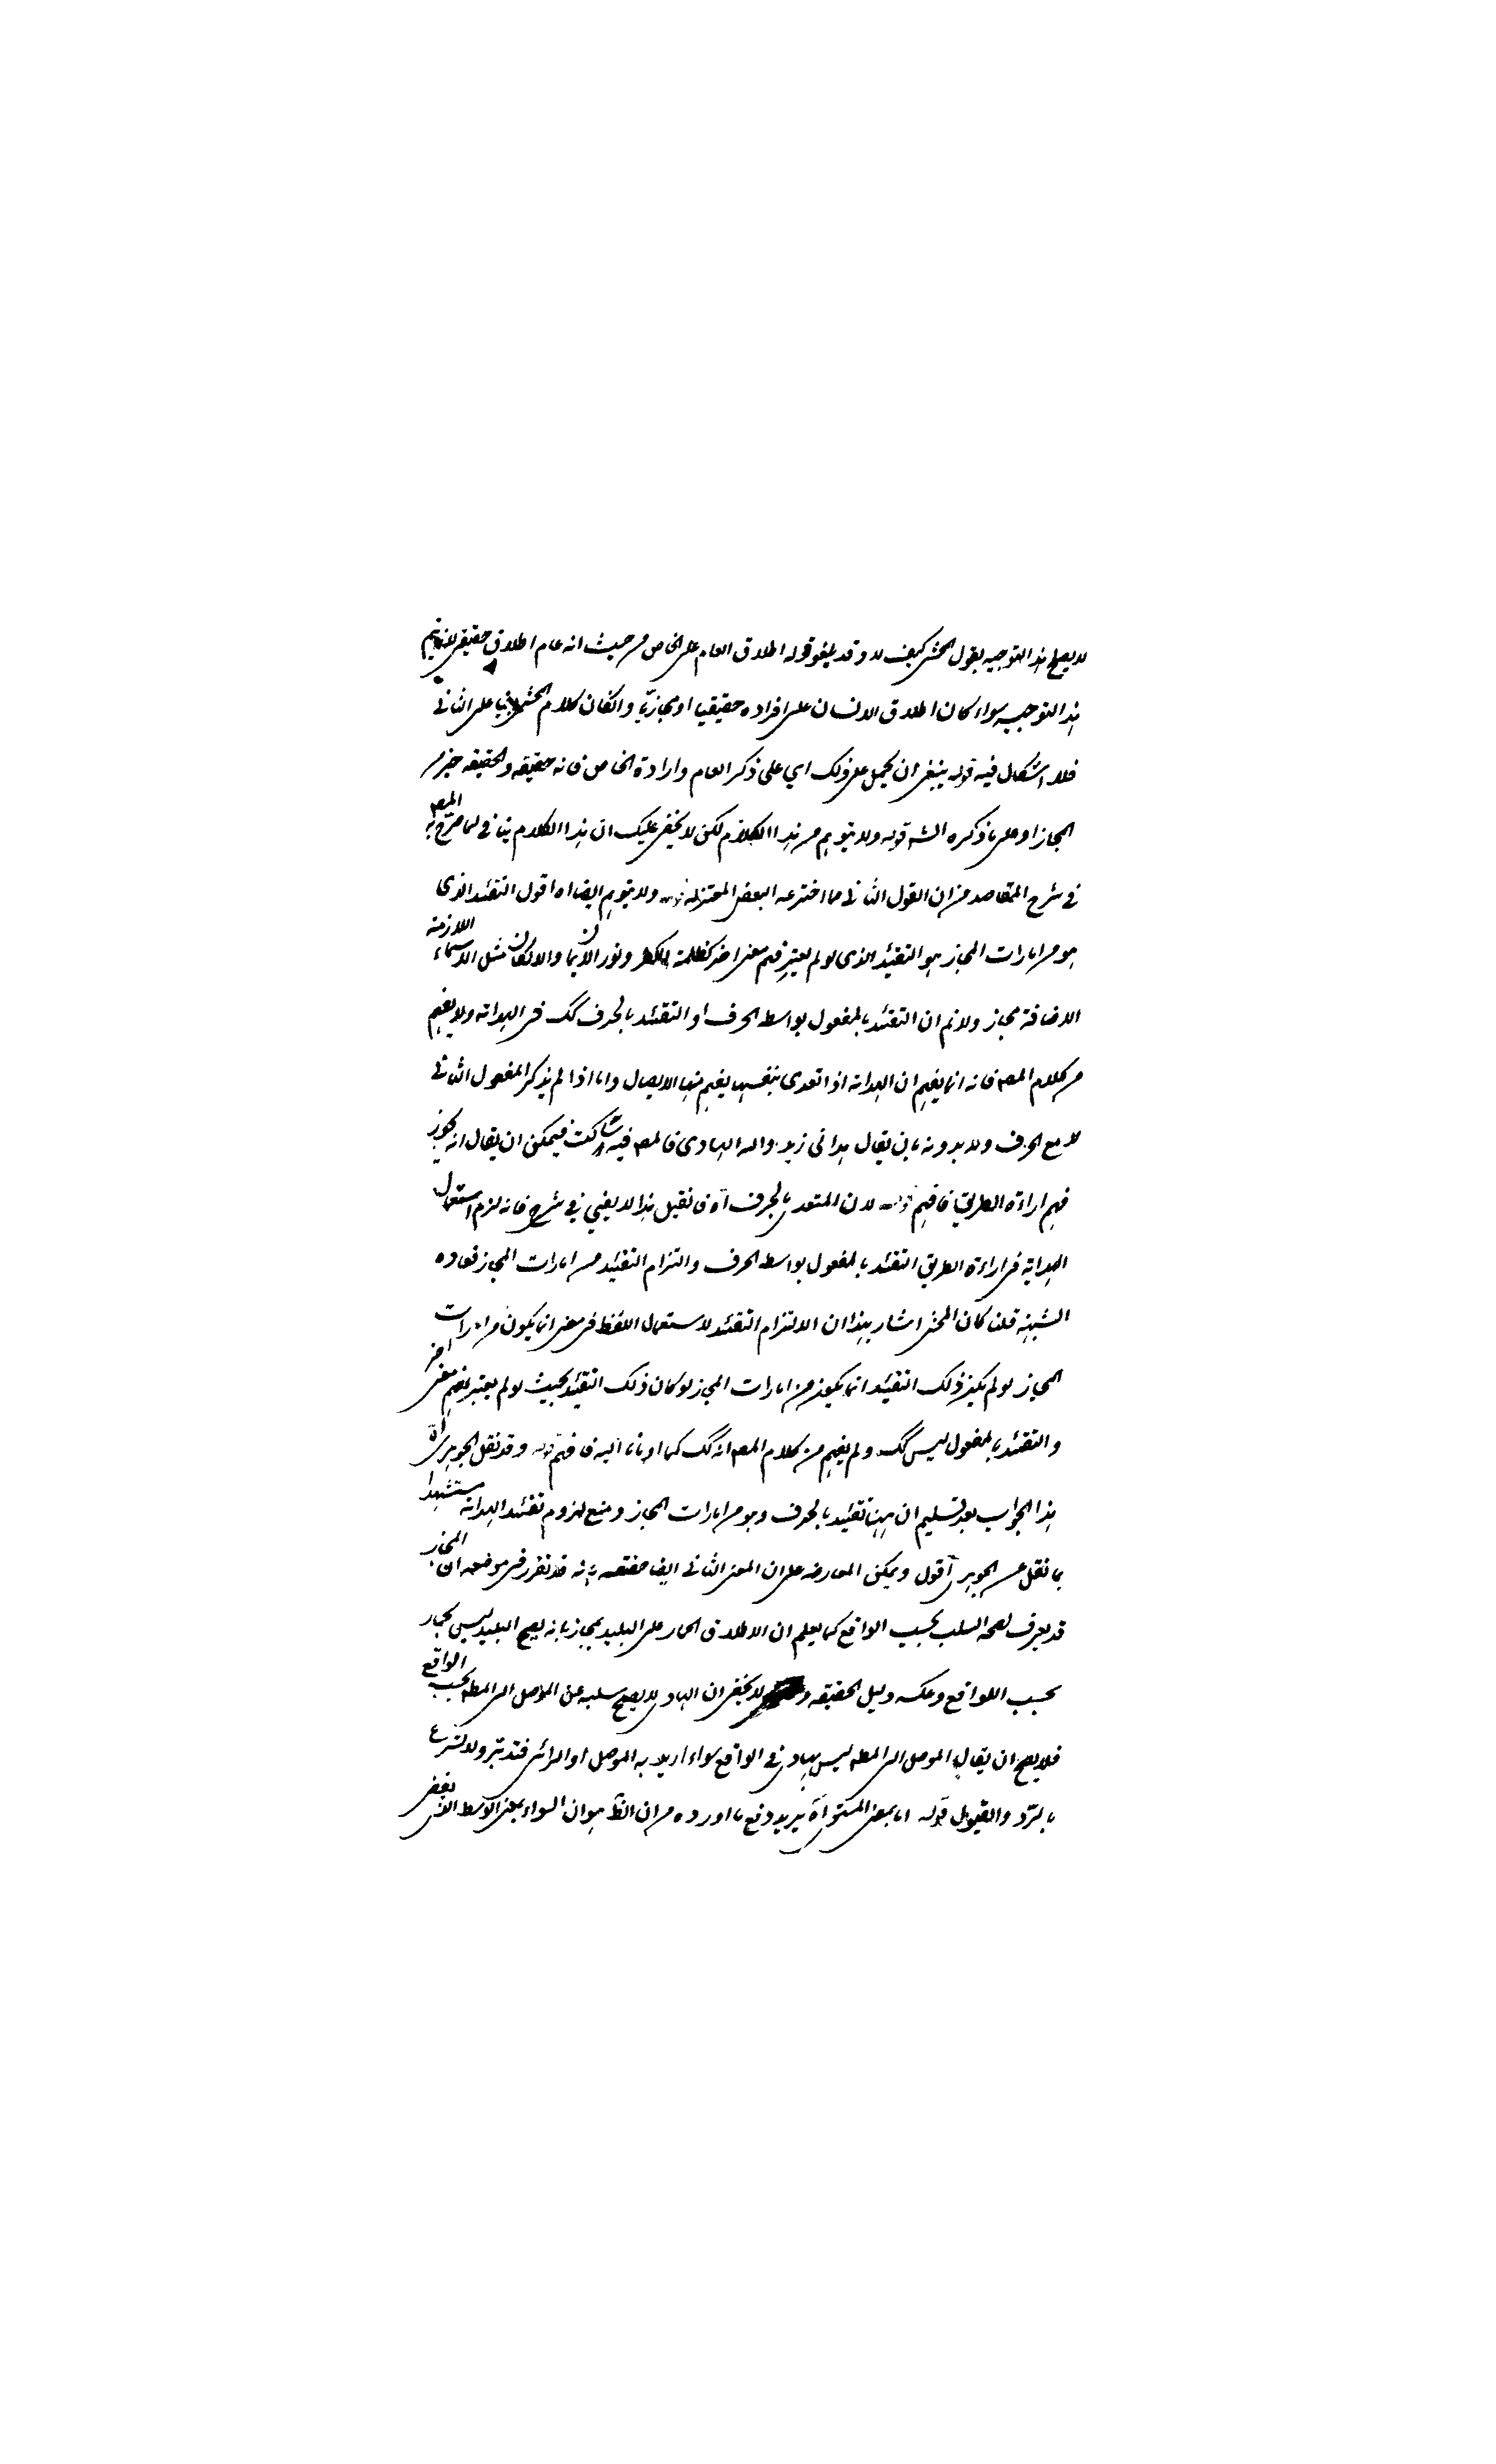 لا يصلح هذا التوجيه بقول المحشى كيف لا وقد يلغو قوله اطلاق العام على الخاص من حيث انه عام اطلاق حقيقى
هذا التوجيه سواء كان اطلاق الانسان على افراده حقيقيا او مجازيا وانكان كلام المحشى على الثانى
فلا اشكال فيه قوله ينبغى ان يحمل على ذلك اي على ذكر العام وارادة الخاص فانه حقيقه والحقيقه خير من
المجاز او على ما ذكره الشه قوله ولا يتوهم من هذا الكلام لكن لا يخفى عليك ان هذا الكلام ينافى لما صرح به المصه
فى شرح المقاصد من ان القول الثانى مما اخترعه البعض المعتزلة قوله ولا يتوهم ايضا اه اقول التقئيد الذى
هو من امارات المجاز هو التقئيد الذى لو لم يعتبر فهم معنى اخر كظلمة الكفر ونور الايمان والا لكان مثل الاسماء اللازمة
الاضافة مجاز ولا نم ان التقئيد بالمفعول بواسطه الحرف او التقئيد بالحرف كك فى الهداية ولا يفهم
من كلام المصه فانه انما يفهم ان الهداية اذا تعدى بنفسها يفهم منها الايصال واما اذا لم يذكر المفعول الثانى
لا مع الحرف ولا بدونه بان يقال هدانى زيد والله الهادى فالمصه فيه ساكت فيمكن ان يقال انه يجوز
فهم اراءة الطريق فافهم قوله لان المتعدى بالحرف اه فانقيل هذا لا يغنى فى شرح فانه لزم استعمال
الهداية فى اراءة الطريق التقئيد بالمفعول بواسطه الحرف والتزام التقئيد من امارات المجاز فعاده
الشبهة قلنا كان المحشى اشار بهذا ان الالتزام التقئيد لاستعمال اللفظ فى معنى انما يكون من امارات
المجاز لو لم يكن ذلك التقئيد انما يكون من امارات المجاز لو كان ذلك التقئيد بحيث لو لم يعتبر يفهم معنى اخر
والتقئيد بالمفعول ليس كك ولم يفهم من كلام المصه انه كك كما اومأنا اليه فافهم قوله وقد نقل الجوهرى اه
هذا الجواب بعد تسليم ان ههنا تقئيد بالحرف وهو من امارات المجاز ومنع لزوم تقئيد الهداية مستشهدا
بما نقل عن الجوهرى اقول ويمكن المعارضه على ان المعنى الثانى ايضا حقيقه بانه قد تقرر فى موضعه ان المجاز
قد يعرف بصحه السلب بحسب الواقع كما يعلم ان الاطلاق الحمار على البليد مجاز بانه يصح البليد ليس بحمار
بحسب اللواقع وعكسه دليل الحقيقه و لا يخفى ان الهادى لا يصح سلبه عن الموصل الى المطه بحسب الواقع
فلا يصح ان يقال الموصل الى المطه ليس بهاد فى الواقع سواء اريد به الموصل او الرائى فتدبر ولا تسرع
بالرد والقبول قوله اما بمعنى المستوى اه يريد دفع ما اورده من ان الظ هو ان السواء بمعنى الوسط